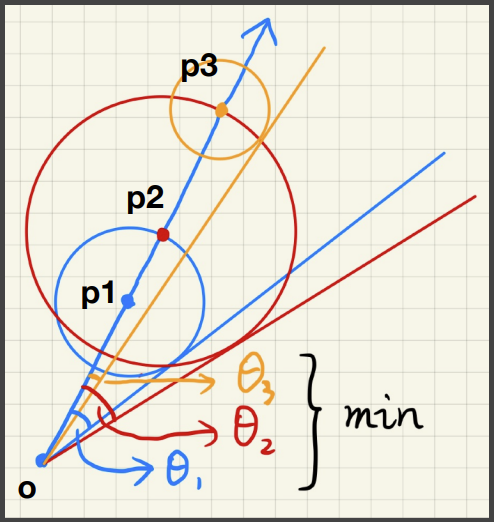 p3
p2
p1
θ3
θ2
θ1
min
o